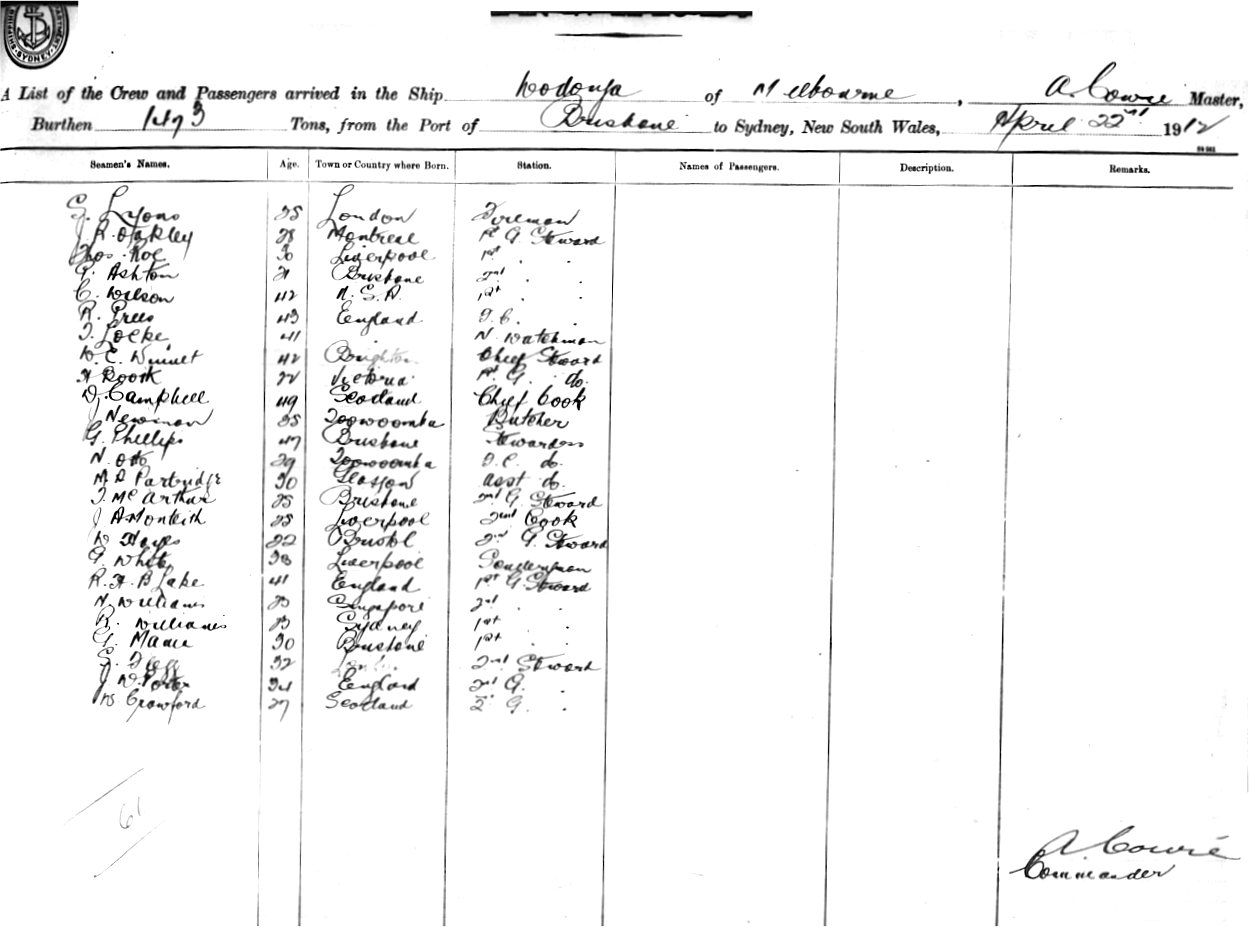 SHIPPING SYDNEY
A List of the Crew and Passengers arrived in the Ship Wodonga of Melbourne, A. Cowie Master,
Burthen Tons, from the Port of Brisbane to Sydney, New South Wales, April 22nd 1912
Seamen's Names. Age. Town or Country where Born. Station. Names of Passengers. Description. Remarks.
Lyons London Fireman
J. R. Oakley 28 Montreal 1st G. Steward
Thos. Roe 30 Liverpool 1st . .
Ashton 21 Brisbane 2nd . .
C. Wilson 42 1st . .
R. 43 England
Locke 41 N. Watchman
W. E. 42 Brighton Chief Steward
22 Victoria 1st G. do.
D. Campbell 49 Scotland Chief Cook
J Newman Toowoomba Butcher
G. Phillips 47 Brisbane Stewardess
N. Otto 29 Toowoomba do.
Partridge 30 Glasgow asst do.
McArthur 25 Brisbane 2nd G. Steward
J A Monteith Liverpool 2nd Cook
W Hayes 22 Bristol 2nd G. Steward
G. White 38 Liverpool
R. H. Blake 41 England 1st G. Steward
N. Williams Singapore 2nd . .
R. Williams Sydney 1st . .
G. 30 Brisbane 1st . .
32 2nd Steward
J. W. Porter 34 England 2nd G. .
W Crawford 27 Scotland 2 G. .
61
A Cowie
Commander